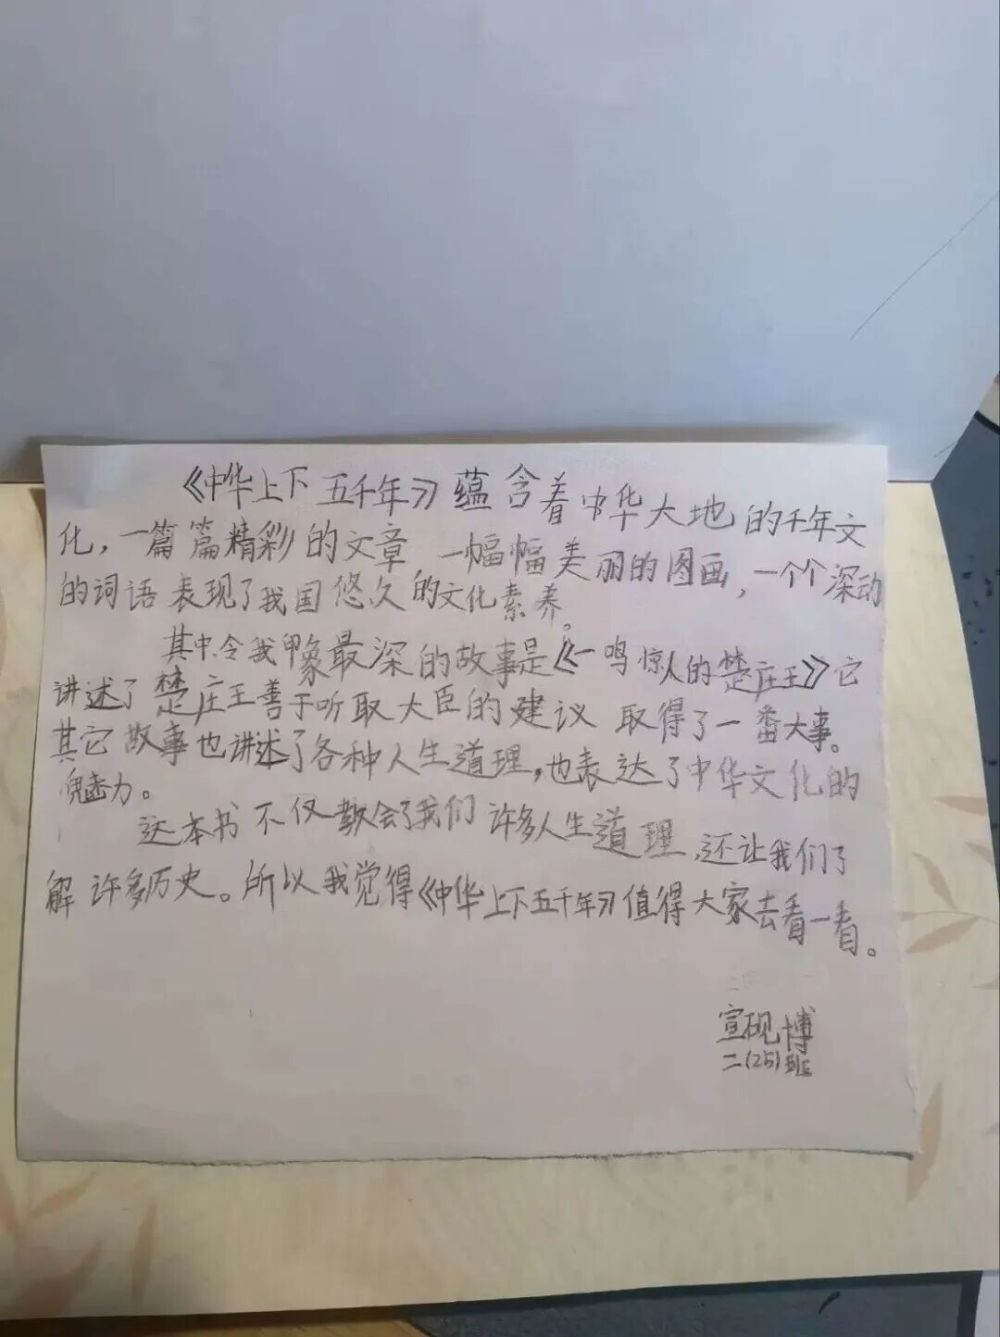 《中华上下五千年》蕴含着中华大地的千年文
化，一篇篇精彩的文章，一幅幅美丽的图画，一个个深动
的词语表现了我国悠久的文化素养。
其中令我印象最深的故事是《一鸣惊人的楚庄王》它
讲述了楚庄王善于听取大臣的建议 取得了一番大事。
其它故事也讲述了各种人生道理，也表达了中华文化的
魅力。
这本书不仅教会了我们许多人生道理，还让我们了
解许多历史。所以我觉得《中华上下五千年》值得大家去看一看。
宣砚博
二(25)班